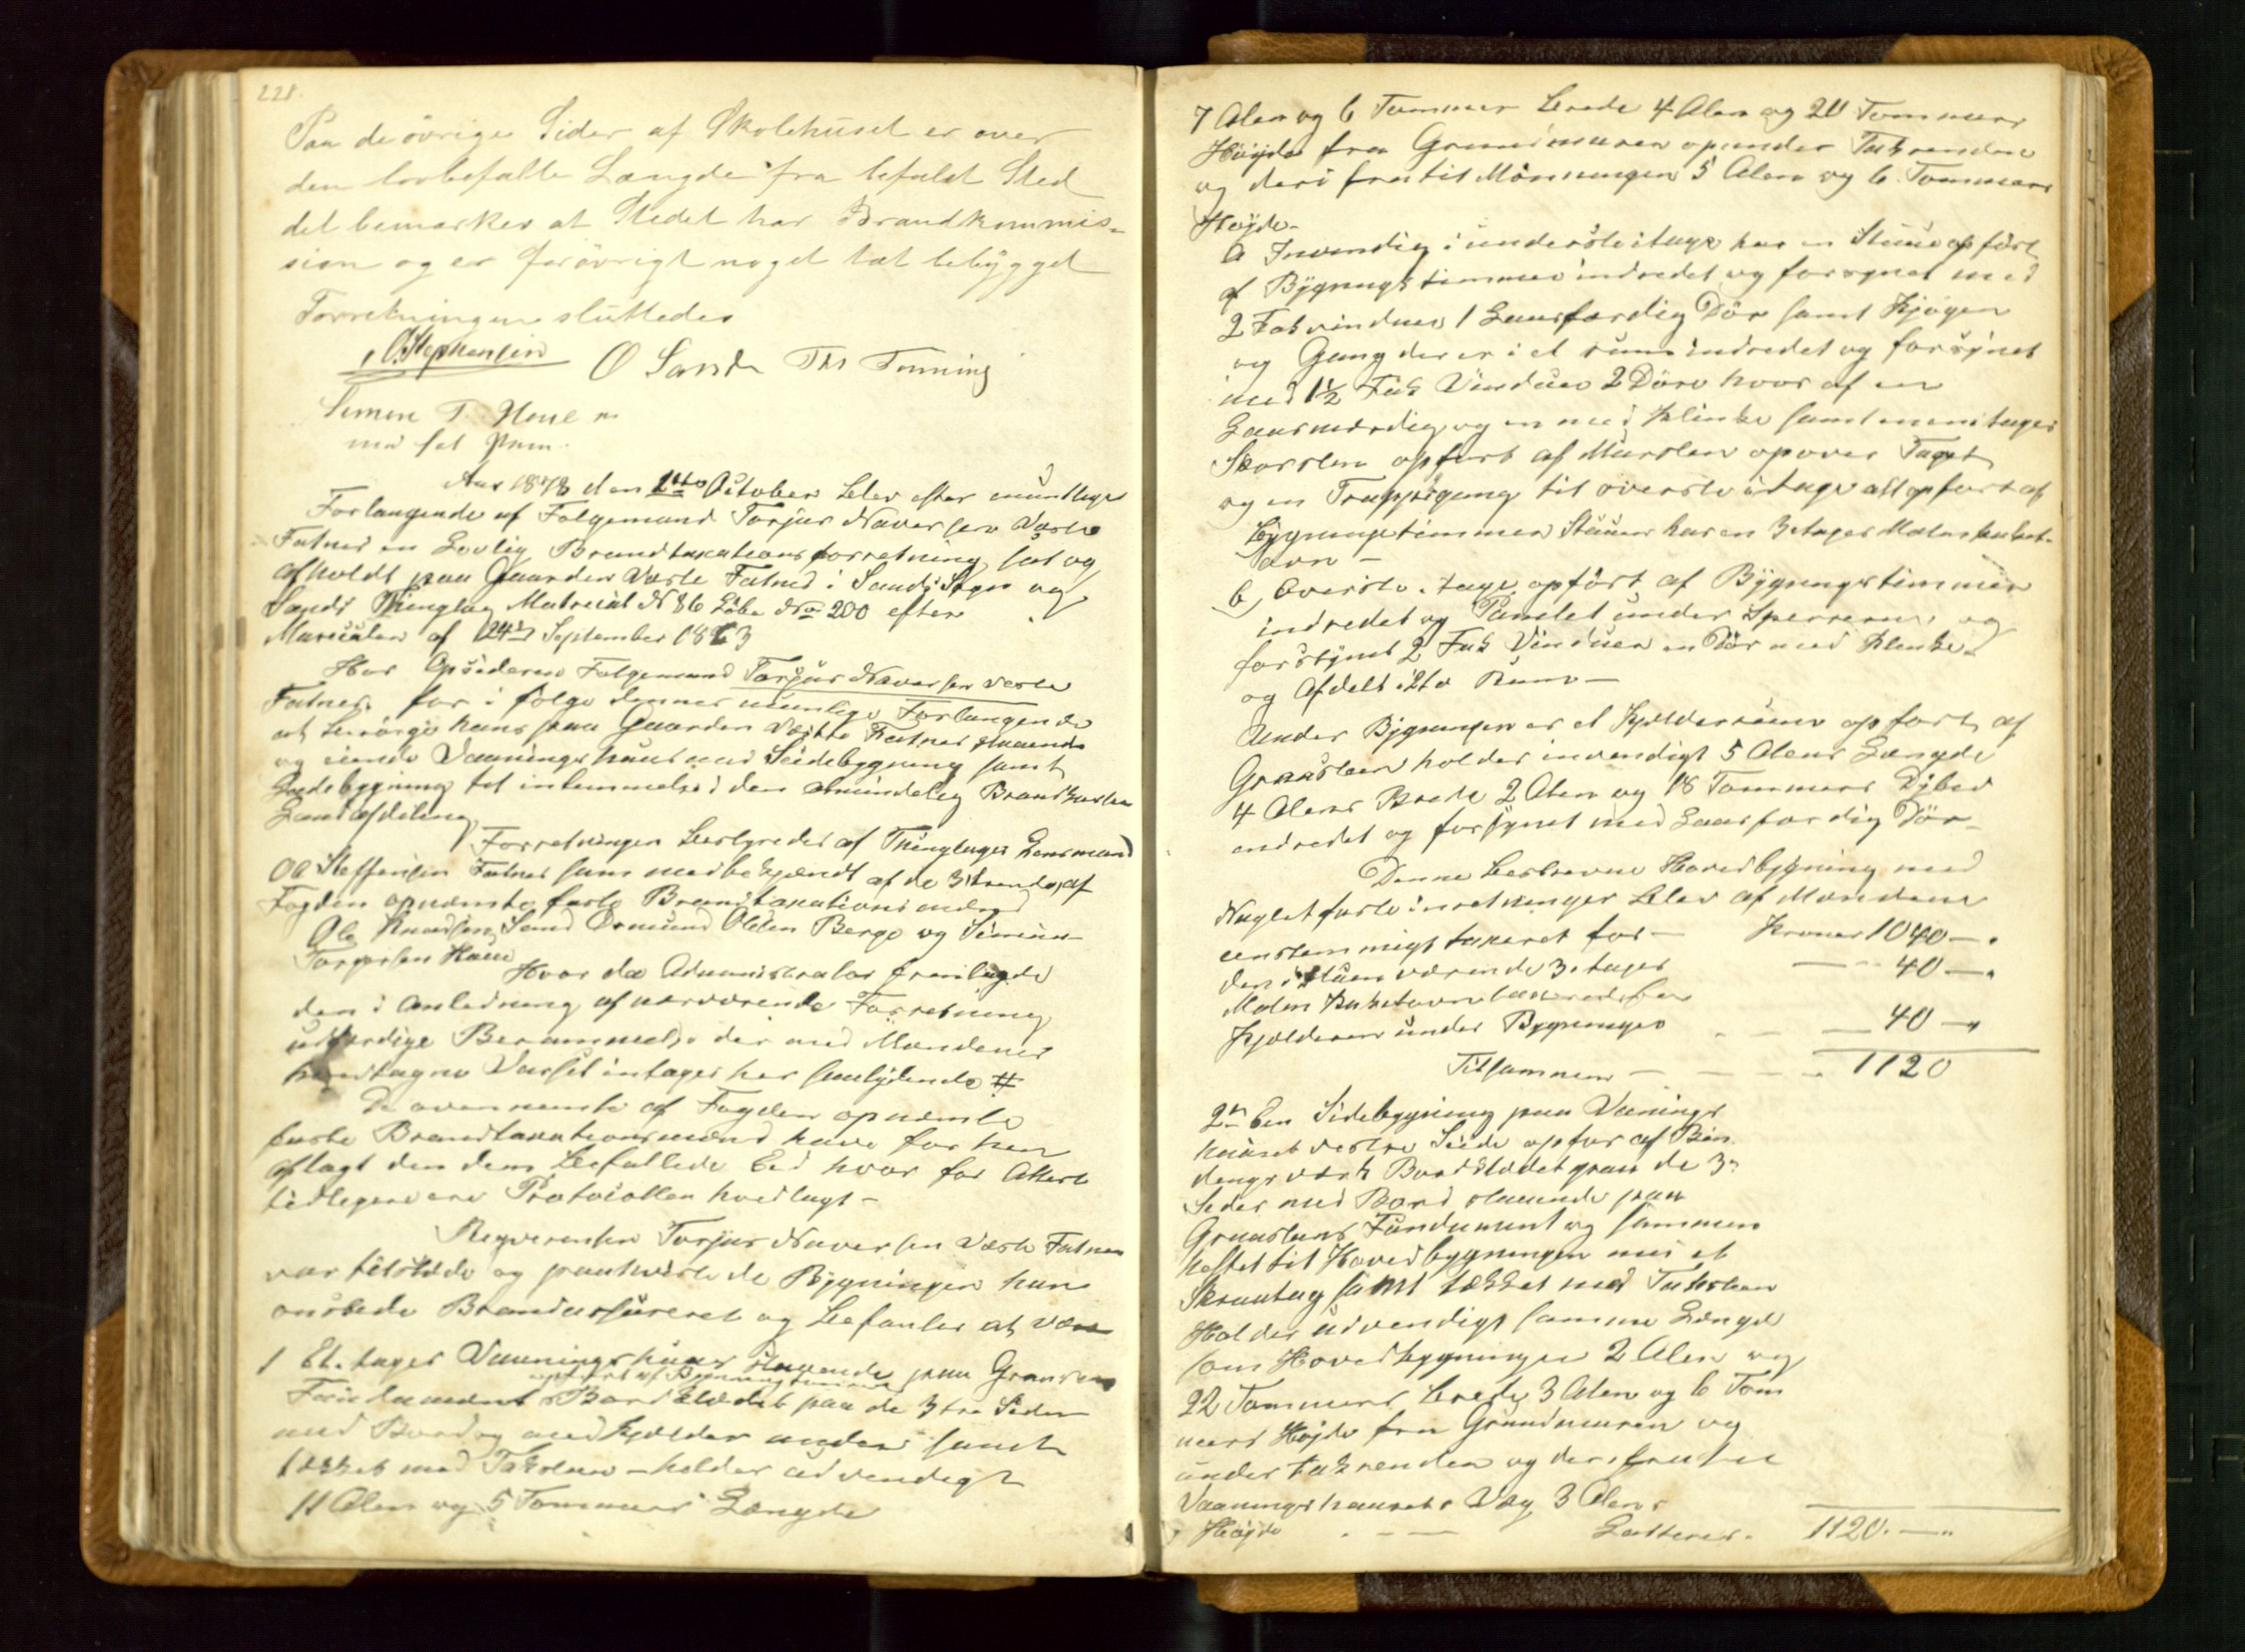 228.
Paa de øvrige Sider af Skolehuset er over
den lovbefalte Længde fra befalet Sted
det bemærkes at Stedet har Brandkommis-
sion og er forøvrigt noget tæt bebygget
Forretningen sluttedes
O. Stephensen O Sand Ths Tenning
Simon T. Houe
med ført Pen.
Aar 1878 den 14de October blev efter mundtlige
Forlangende af Folgemand Torjus Naversen Væste
Fatnes en Lovlig Brandtaxationsforretning sat og
afholdt paa Gaarden Væste Fatnes i Sands Sogn og
Sands Thinglag Matricul N 86 Løbe No 200 efter
Matriculen af 24de September 1863
Har Opsideren Folgemand Torjus Naversen Væste
Fatnes for i følge dennes mundlige Forlangende
at besørge hans paa Gaarden Væste Fatnes staaende
og eiende Vaaningshuus med Sidebygning samt
Ladebygning til intemmelse i den almindelig Brandkasse
Landafdeling
Forretningen bestyredes af Thinglages Lensmand
Ol Steffensen Fatnes som medbekjendt af de 3 trende, af
Fogden opnævnte faste Brandtaxationsmænd
Ole Knudsen Sand Osmund Olsen Berge og Simon
Torgersen Houe
Hvor da Administrator fremlagde
den i anledning af nærværende Forretning
udfærdige Berammelse der med Mændenes
paategne Varsel intages her saalydende #
De ovennevnte af Fogden opnævnte
faste Brandtaxationsmænd have for hen
aflagt den dem befallede Eed hvor for Attest
tidligere ere Protocollen hvedlagt -
Reqverenten Torjus Naversen Væste Fatnes
var tilstede og paahviste de Bygninger han
ønskede Brandassureret og befantes at være
1 Et. tages Vaaningshuus staaende paa Graasten
opført af Bygningstimmer
Fundament Bordklædet paa de 3tre Sider
med Bord og med Kjelder under samt
tækket med Taksteen - holder udvendigt
11 Alen og 5 Tommers Længde
7 Alen og 6 Tommer brede 4 Alen og 20 Tommers
Høyde fra Grundmuren opunder Takrenden
og deri fra til Mønningen 5 Alen og 6 Tommers
Høyde.
a Invendig i understeitage har en Stuue opført
af Bygnings timmer indredet og forsynet med
2 Fak vinduer 1 Laasfærdig Dør samt Kjøgen
og Gang der er i et rum indredet og forsynet
med 1½ Fak Vinduer 2 Døre hvor af en
Laasværdig og en med Klinke samt enenitages
Skorsten opført af Mursten opover Taget
og en Trappegang til øverste itage alt opført af
bygningstimmer Stuuen har en 3 etages Malm kaket-
oven -
b, Overste. tage opført af Bygningstimmer
indredet og Panelet under Sperrerne, og
forsynet 2 Fak Vinduer en Dør med Klinke
og Afdelt i 2to Rum -
Under Bygningen er et Kjelderrum opført af
Graasteen holder invendigt 5 Alens Længde
4 Alens Brede 2 Alen og 18 Tommers Dybde
endredet og forsynet med Laasfærdig Dør -
Denne beskrevne Hovedbygning med
Naglet faste inretninger blev af Mændene
eenstemmigt taxeret for - Kroner 1040 - "
den i Stuen værende 3. tages — — 40 — "
Malm Kakelovn taxeredes for
Kjelderen under Bygningen — — 40 — "
Tilsammen — — — 1120
2n Een Sidebygning paa Vaanings
huuset vestre Side opført af Bin
dings værk Bordklædet paa de 3n
Sider med Bord staaende paa
Graastens Fundament og sammen
hæftet til Hovedbygningen med et
Skraatag samt tækket med Taksteen
Holder udvendigt samme Længde
som Hovedbygningen 2 Alen og
22 Tommers brede 3 Alen og 6 Tom
mers Høyde fra Grundmuren og
under takrenden og deri fra til
Vaaningshuusets Væg 3 Alens
Høyde . — — Latteres. 1120. — "